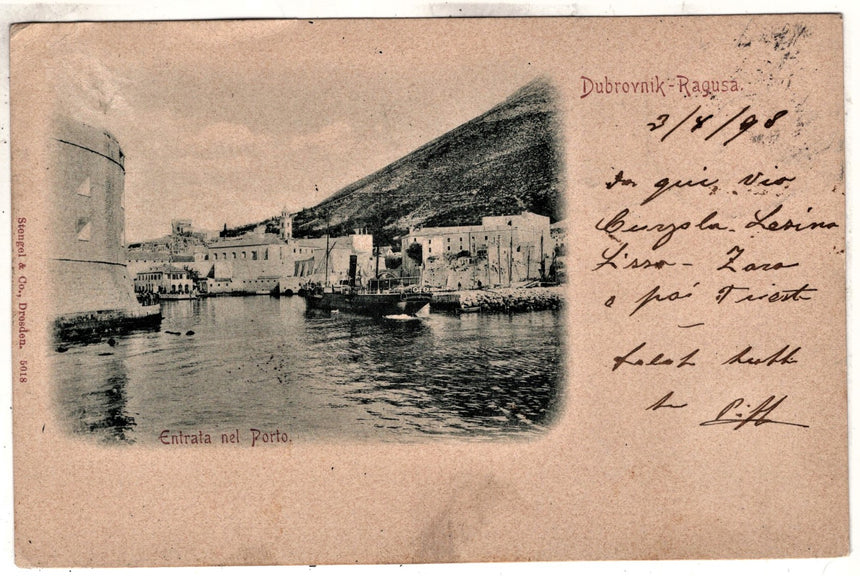 Dubrovnik-Ragusa.
3/4/98
da qui via
Curzola - Lesina
Lissa - Zara
e poi Trieste
tutti
Entrata nel Porto.
Stengel & Co., Dresden. 5018